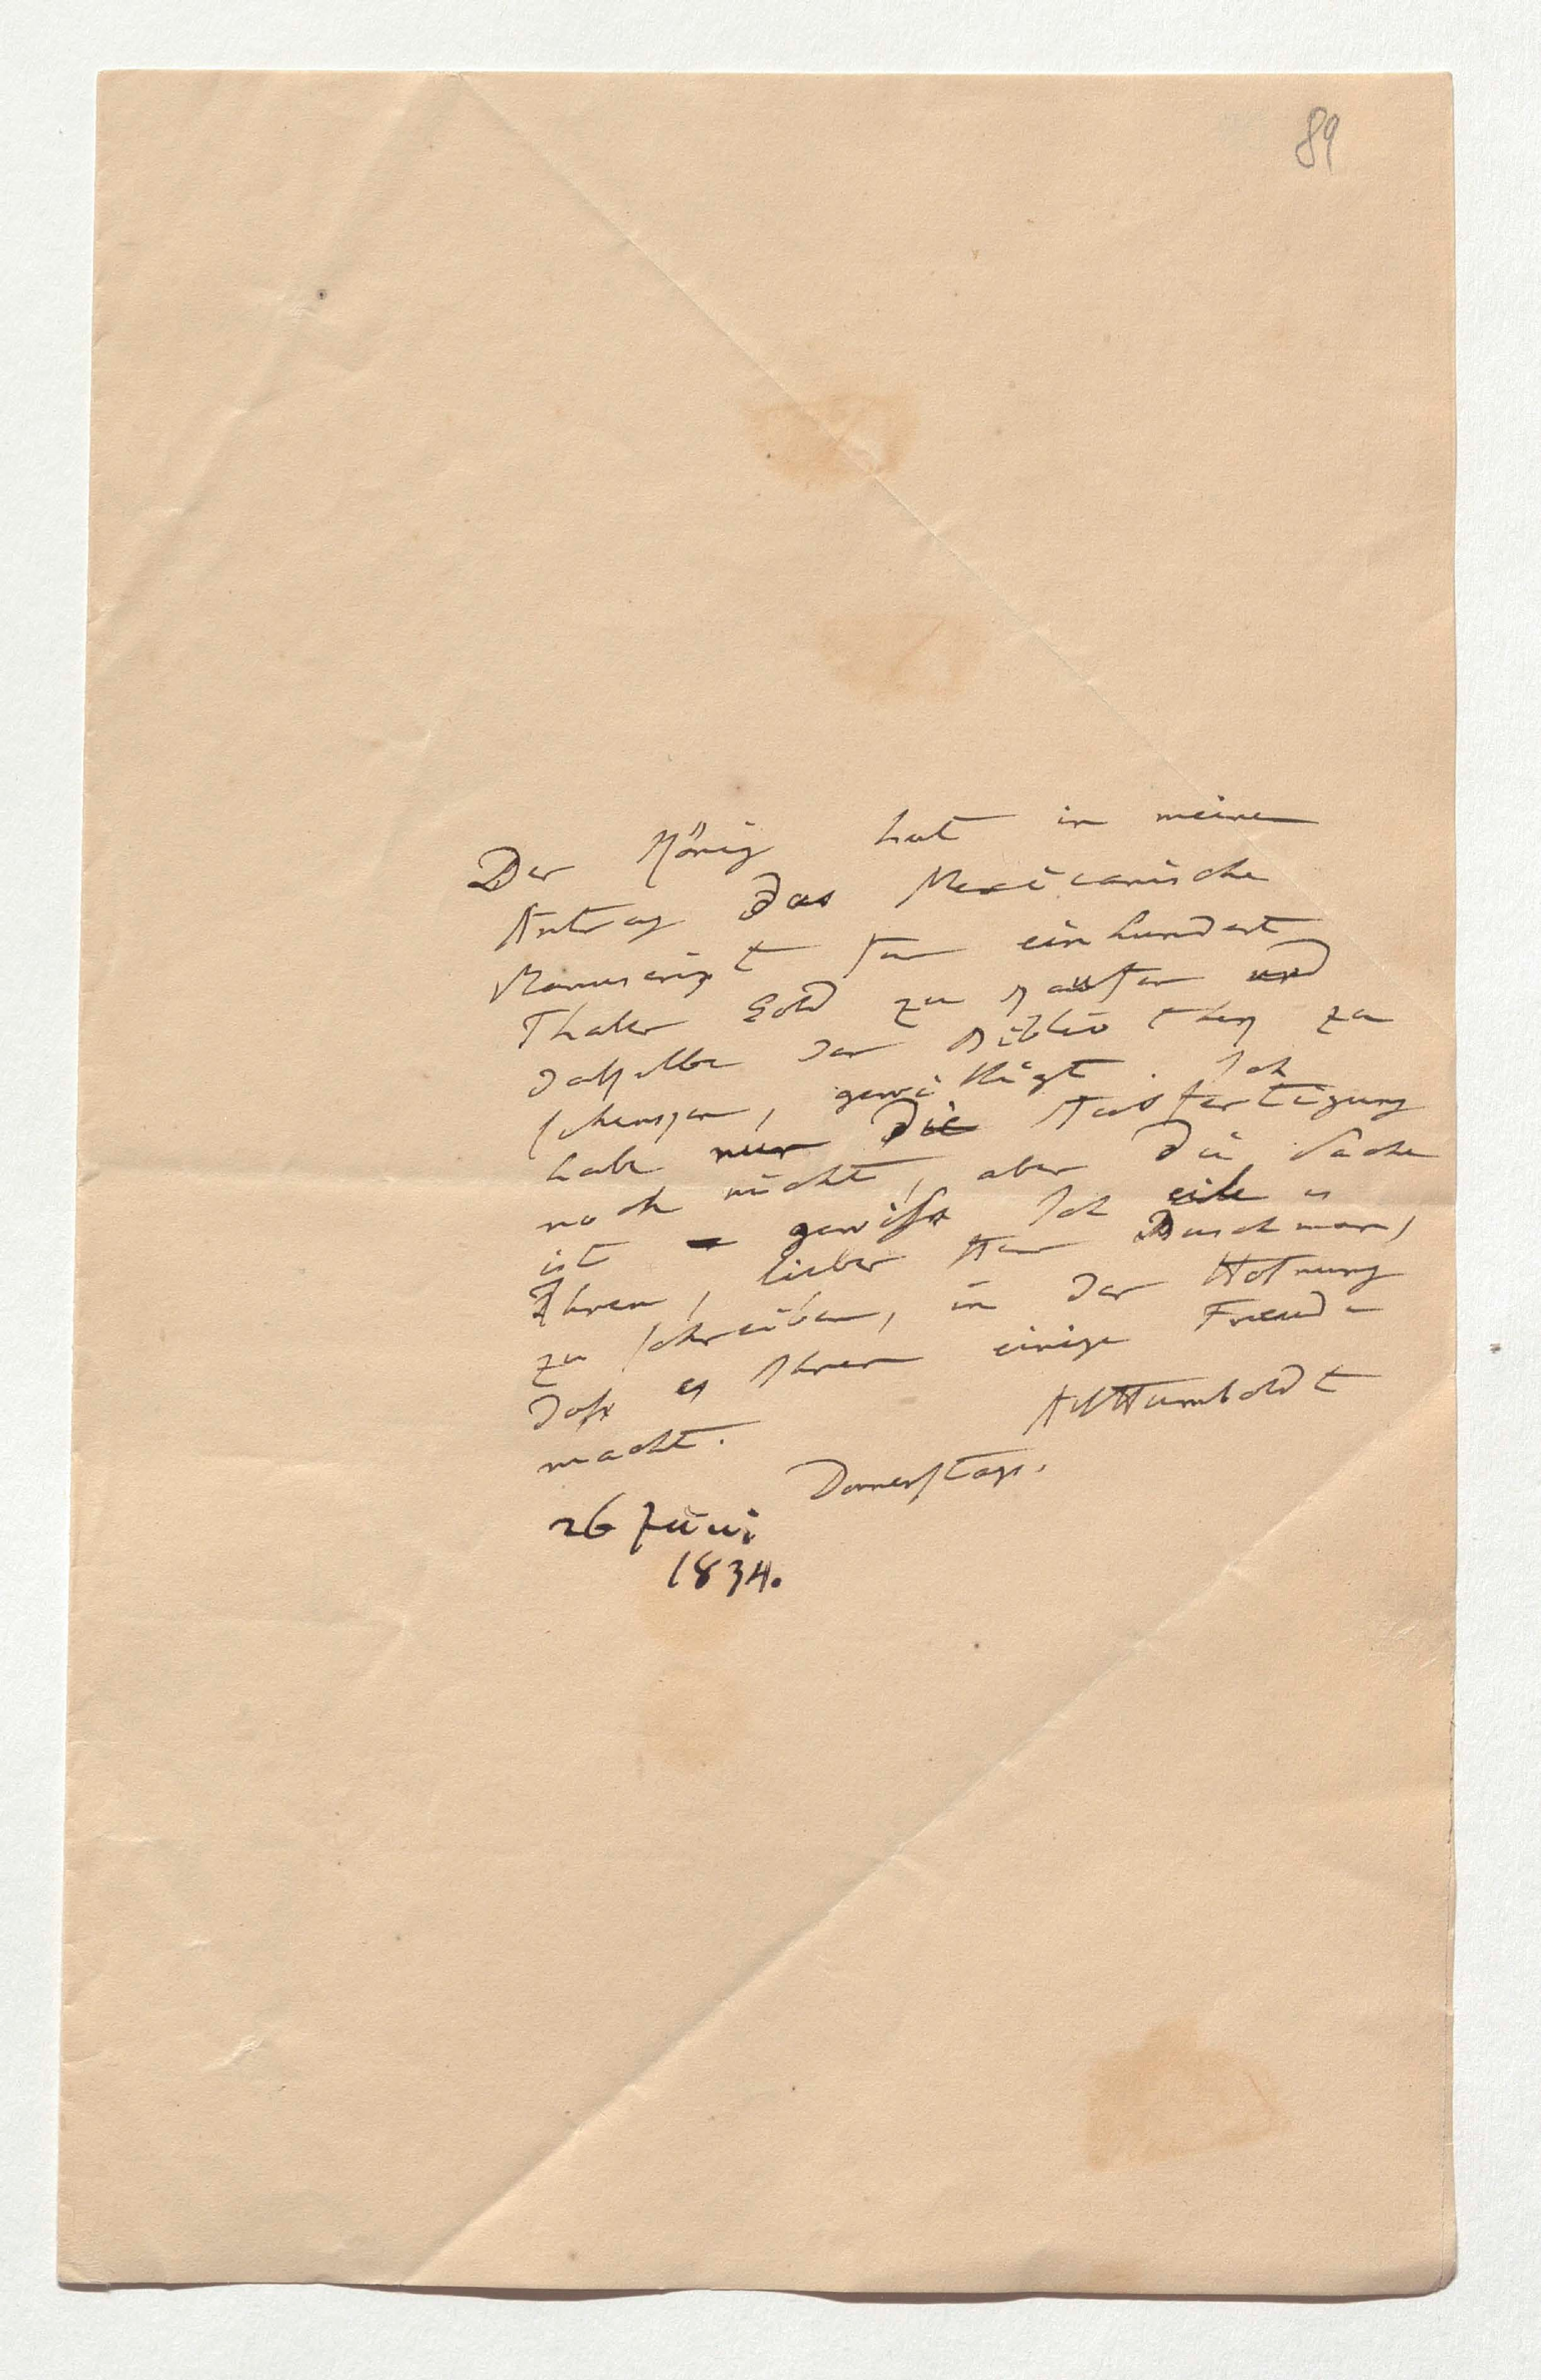 89
Der König hat in meine
Antrag das Mexicanische
Manuscript für einhundert
Thaler Gold zu kaufen und
dasselbe der Bibliothek zu
schenken, gewilligt. Ich
habe nur die Ausfertigung
noch nicht, aber die Sache
ist gewiß. Ich eile es
Ihnen, lieber Herr Buschman,
zu schreiben, in der Hofnung
daß es Ihnen einige Freude
macht.
AlHumboldt
Donnerstags.
26 Juni
1834.